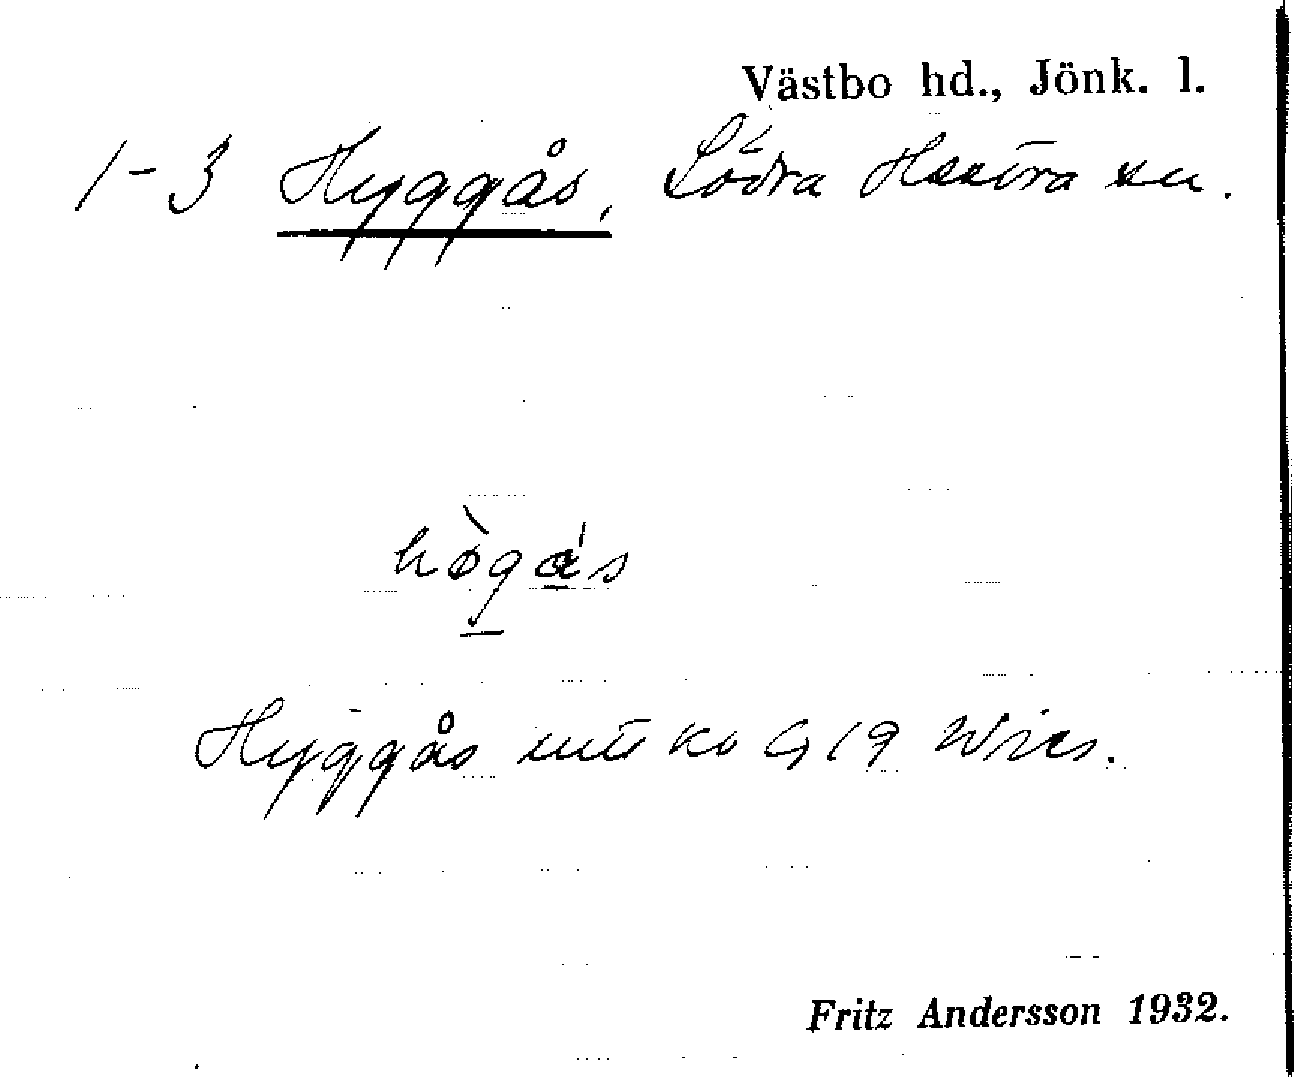 Västbo hd., Jönk. l.
1-3 Hyggås, Södra Hestra sn.
högås
Hyggås G 19 Wies.
Fritz Andersson 1932.